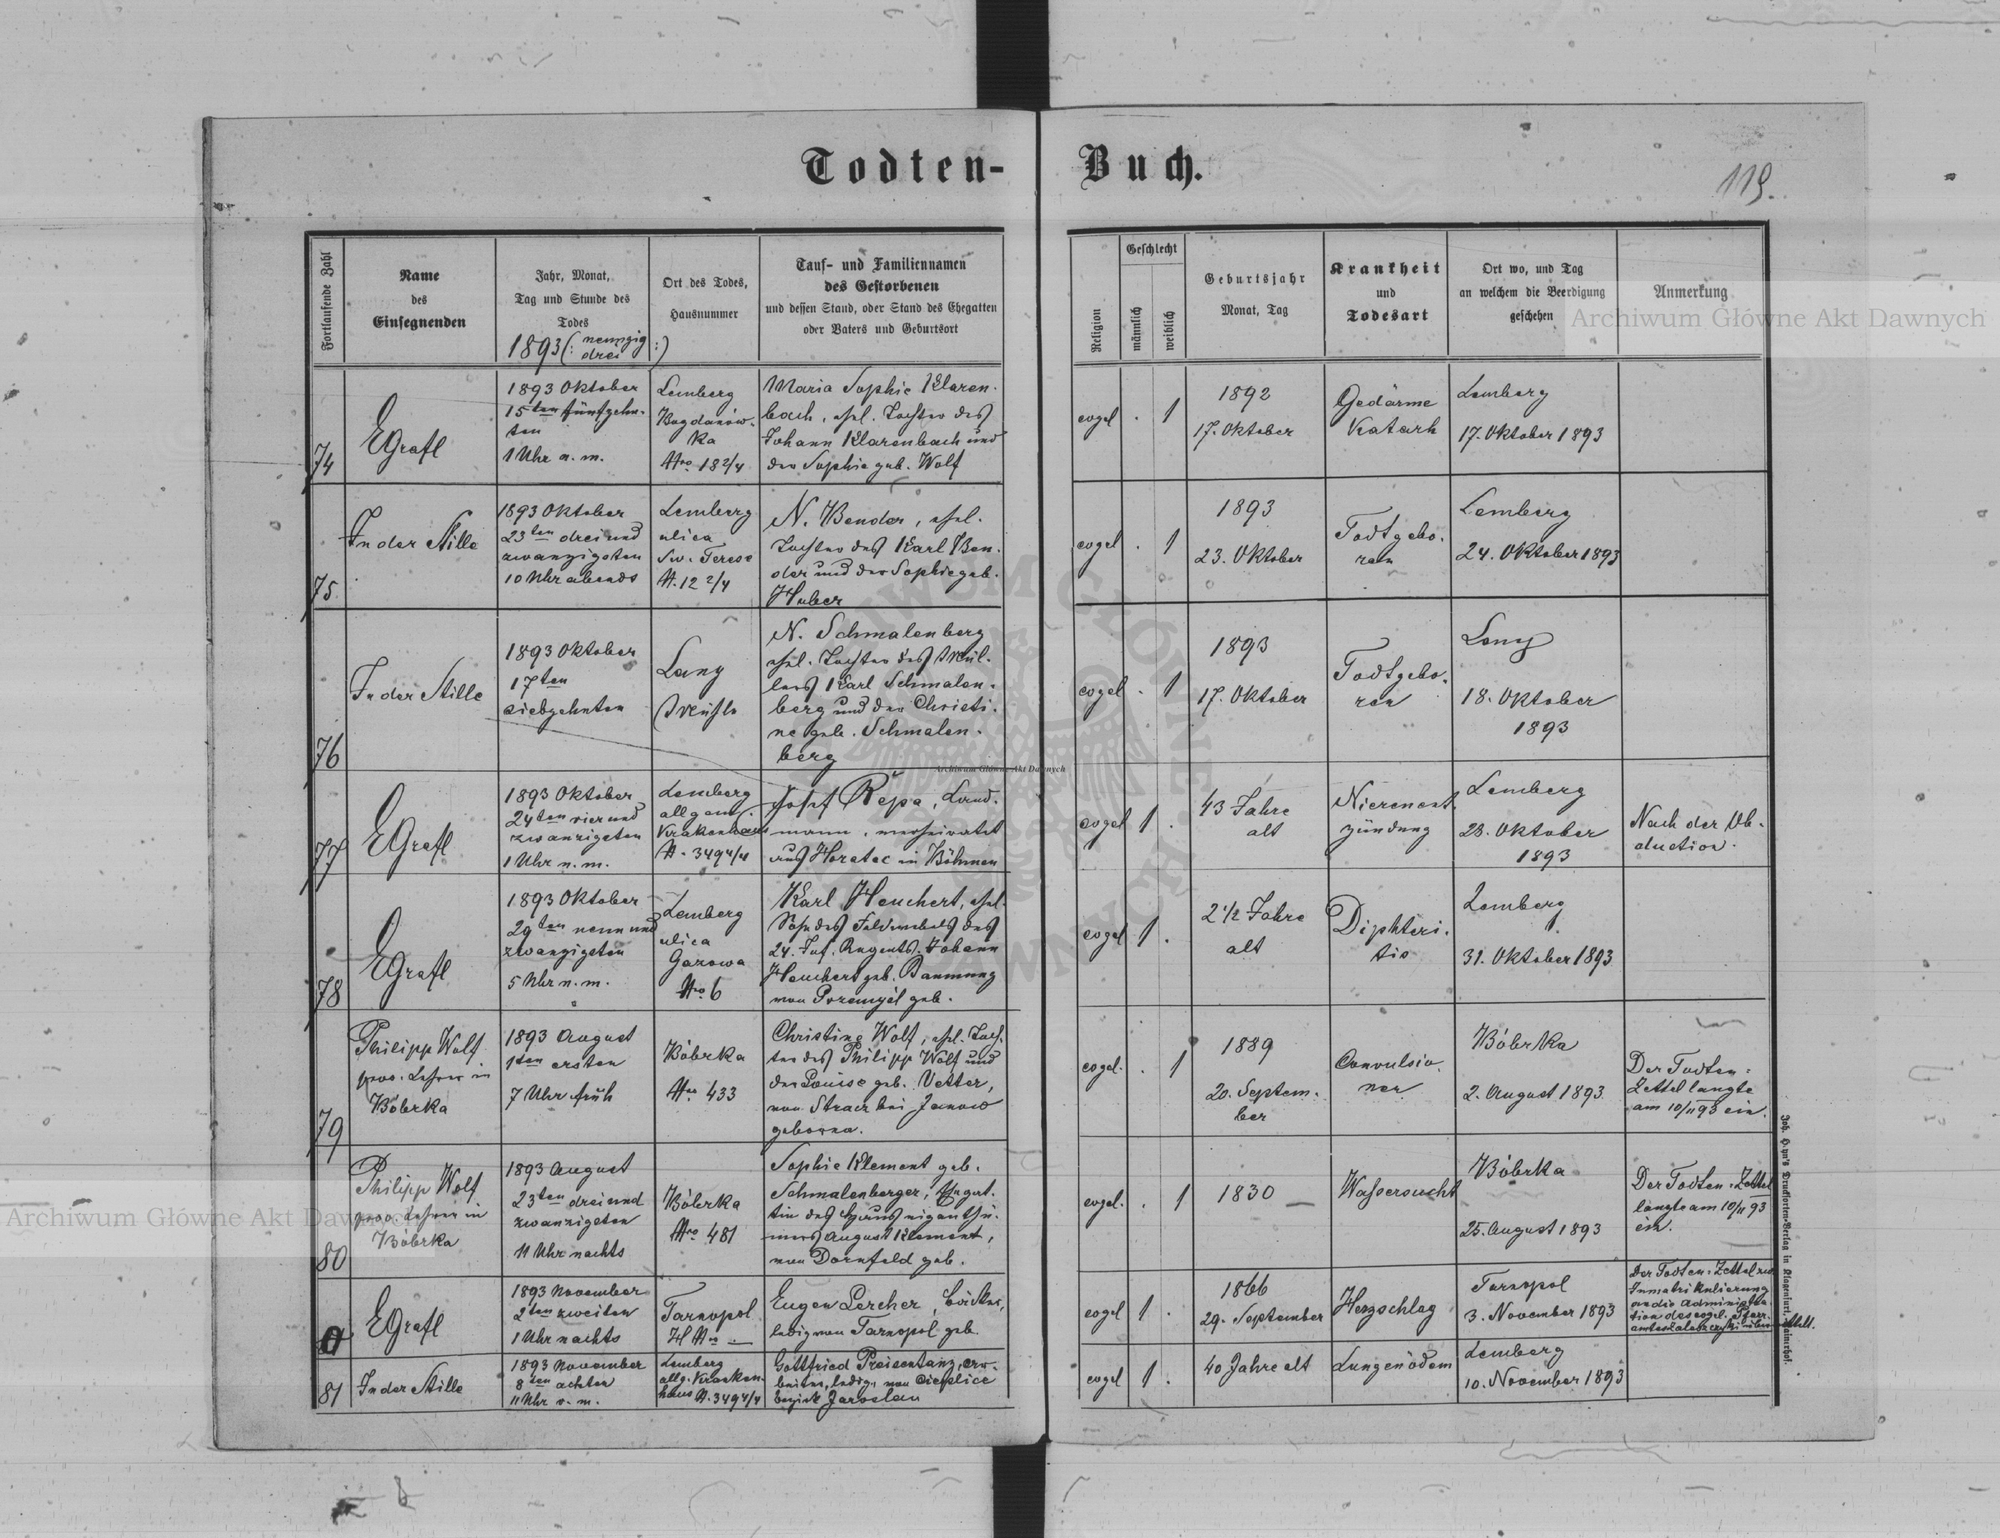 Todten-Buch.
119.
Fortlaufende Zahl
Name
des
Einsegnenden
Jahr, Monat,
Tag und Stunde des
Todes
1893 (: neunzig
drei :)
Ort des Todes,
Hausnummer
Tauf- und Familiennamen
des Gestorbenen
und dessen Stand, oder Stand des Ehegatten
oder Vaters und Geburtsort
Religion
Geschlecht
männlich
weiblich
Geburtsjahr
Monat, Tag
Krankheit
und
Todesart
Ort wo, und Tag
an welchem die Beerdigung
geschehen
Anmerkung
74
EGrafl
1893 Oktober
15ten fünfzehn-
ten
1 Uhr a. m.
Lemberg
Bogdanów-
ka
Nro 18 2/4
Maria Sophie Klaren-
bach, ehel. Tochter des
Johann Klarenbach und
der Sophie geb. Wolf
evgel
1
1892
17. Oktober
Gedärme
Katarh
Lemberg
17. Oktober 1893
75
In der Stille
1893 Oktober
23ten drei und
zwanzigsten
10 Uhr abends
Lemberg
ulica
Sw. Terese
N. 12 2/4
N. Bender, ehel.
Tochter des Karl Ben-
der und der Sophie geb.
Huber
evgel
1
1893
23. Oktober
Todtgebo-
ren
Lemberg
24. Oktober 1893
76
In der Stille
1893 Oktober
17ten
siebzehnten
Lany
Mühle
N. Schmalenberg
ehel. Tochter des Mül-
lers Karl Schmalen-
berg und der Christi-
ne geb. Schmalen-
berg
evgel
1
1893
17. Oktober
Todtgebo-
ren
Lany
18. Oktober
1893
77
EGrafl
1893 Oktober
24ten vier und
zwanzigsten
1 Uhr n. m.
Lemberg
allgem.
Krakenhaus
N. 349 4/4
Josef Řepa, Land-
mann, verheiratet
aus Horatec in Böhmen
evgel
1
43 Jahre
alt
Nierenent-
zündung
Lemberg
28. Oktober
1893
Nach der Ob-
duction.
78
EGrafl
1893 Oktober
29ten neun und
zwanzigsten
5 Uhr n. m.
Lemberg
ulica
Gazowa
Nro 6
Karl Heuchert, ehel.
Sohn des Feldwebels des
24. Inf. Regents. Johann
Heuchert geb.
von Przemyśl geb.
evgel
1
2 1/2 Jahre
alt
Diphteri-
tis
Lemberg
31. Oktober 1893
79
Philipp Wolf
prov. Lehrer in
Bóbrka
1893 August
1ten ersten
7 Uhr früh
Bóbrka
Nro 433
Christine Wolf, ehel. Toch-
ter des Philipp Wolf und
der Louise geb. Vetter,
von bei Janow
geboren.
evgel.
1
1889
20. Septem-
ber
Convulsio-
nen
Bóbrka
2. August 1893
Der Todten-
Zettel langte
am 10/11 93 ein.
80
Philipp Wolf
prov. Lehrer in
Bóbrka
1893 August
23ten drei und
zwanzigsten
11 Uhr nachts
Bóbrka
Nro 481
Sophie Klement geb.
Schmalenberger, Ehegat-
tin des Hauseigenthü-
mers August Klement,
von Dornfeld geb.
evgel.
1
1830 —
Wassersucht
Bóbrka
25. August 1893
Der Todten-Zettel
langte am 10/11 93
ein.
EGrafl
1893 November
2ten zweiten
1 Uhr nachts
Tarnopol
H Nro —
Eugen Lercher, Bäcker,
ledig von Tarnopol geb.
evgel
1
1866
29. September
Herzschlag
Tarnopol
3. November 1893
Der Todten-Zettel zur
Inmatrikulierung
an die Administra
tion des evgel. Pfarr-
amtes Zaleszczyki übermittelt.
81
In der Stille
1893 November
8ten achten
11 Uhr v. m.
Lemberg
allg. Kranken-
haus N. 349 4/4
Gottfried Preisentanz, Ar-
beiter, ledig, von Cieplice
bezirk Jaroslau
evgel
1
40 Jahre alt
Lungenödem
Lemberg
10. November 1893
Archiwum Główne Akt Dawnych
Archiwum Główne Akt Dawnych
Archiwum Główne Akt Dawnych